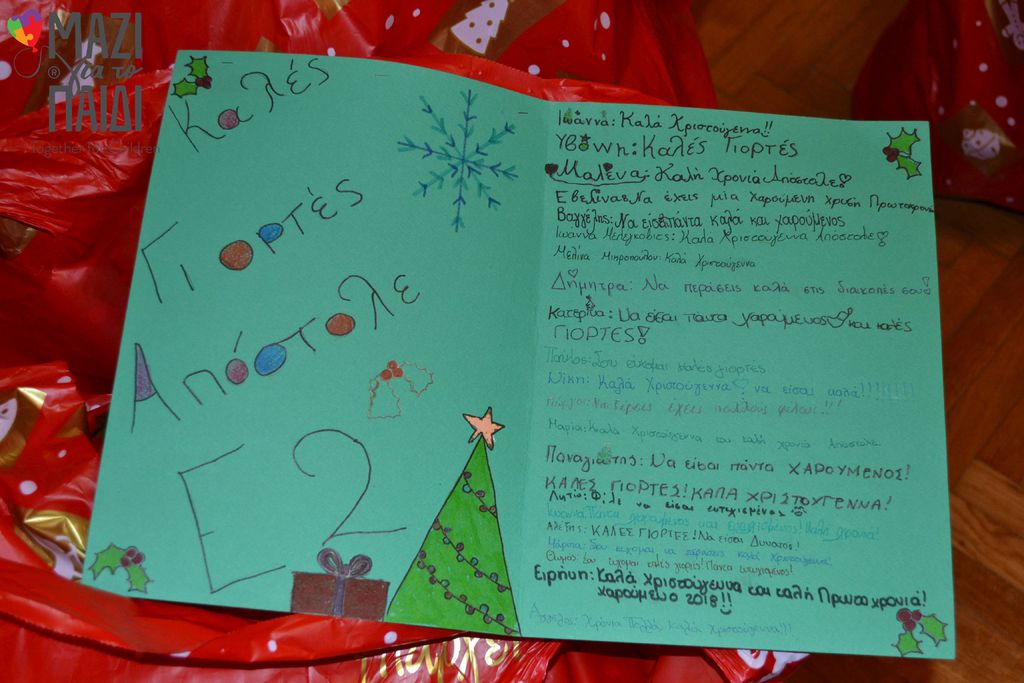 ΜΑΖΙ
για το
ΠΑΙΔΙ
Together for Children
Καλές
Γιορτές
Απόστολε
Ε2
Ιωάννα: Καλά Χριστούγεννα!!
Υβόννη: Καλές Γιορτές
Μαλένα: Καλή Χρονιά Απόστολε!
Εβελίνα: Να έχεις μία χαρούμενη χρυσή Πρωτοχρονιά
Βαγγέλης: Να είσαι πάντα καλά και χαρούμενος
Ιωάννα: Καλά Χριστούγεννα Απόστολε!
Μελίνα Μικροπούλου: Καλά Χριστούγεννα
Δήμητρα: Να περάσεις καλά στις διακοπές σου!
Κατερίνα: Να είσαι πάντα χαρούμενος και καλές
ΓΙΟΡΤΕΣ!
Παύλος: Σου εύχομαι καλές γιορτές
Νίκη: Καλά Χριστούγεννα να είσαι καλά!!!!!!!!!
Γιώργος: Να ξέρεις έχεις πολλούς φίλους!!!
Μαρία: Καλά Χριστούγεννα και καλή χρονιά Απόστολε
Παναγιώτης: Να είσαι πάντα ΧΑΡΟΥΜΕΝΟΣ!
ΚΑΛΕΣ ΓΙΟΡΤΕΣ! ΚΑΛΑ ΧΡΙΣΤΟΥΓΕΝΝΑ!
Λητώ: Φίλε να είσαι ευτυχισμένος
Πάντα χαρούμενος και ευτυχισμένος! Καλή χρονιά!
Αλέξης: ΚΑΛΕΣ ΓΙΟΡΤΕΣ! Να είσαι Δυνατός!
Μάριος: Σου εύχομαι να περάσεις καλά Χριστούγεννα!
Σου εύχομαι καλές γιορτές! Πάντα ευτυχισμένος!
Ειρήνη: Καλά χριστούγεννα και καλή Πρωτοχρονιά!
χαρούμενο 2018!!
Άγγελος: Χρόνια Πολλά, Καλά Χριστούγεννα!!!